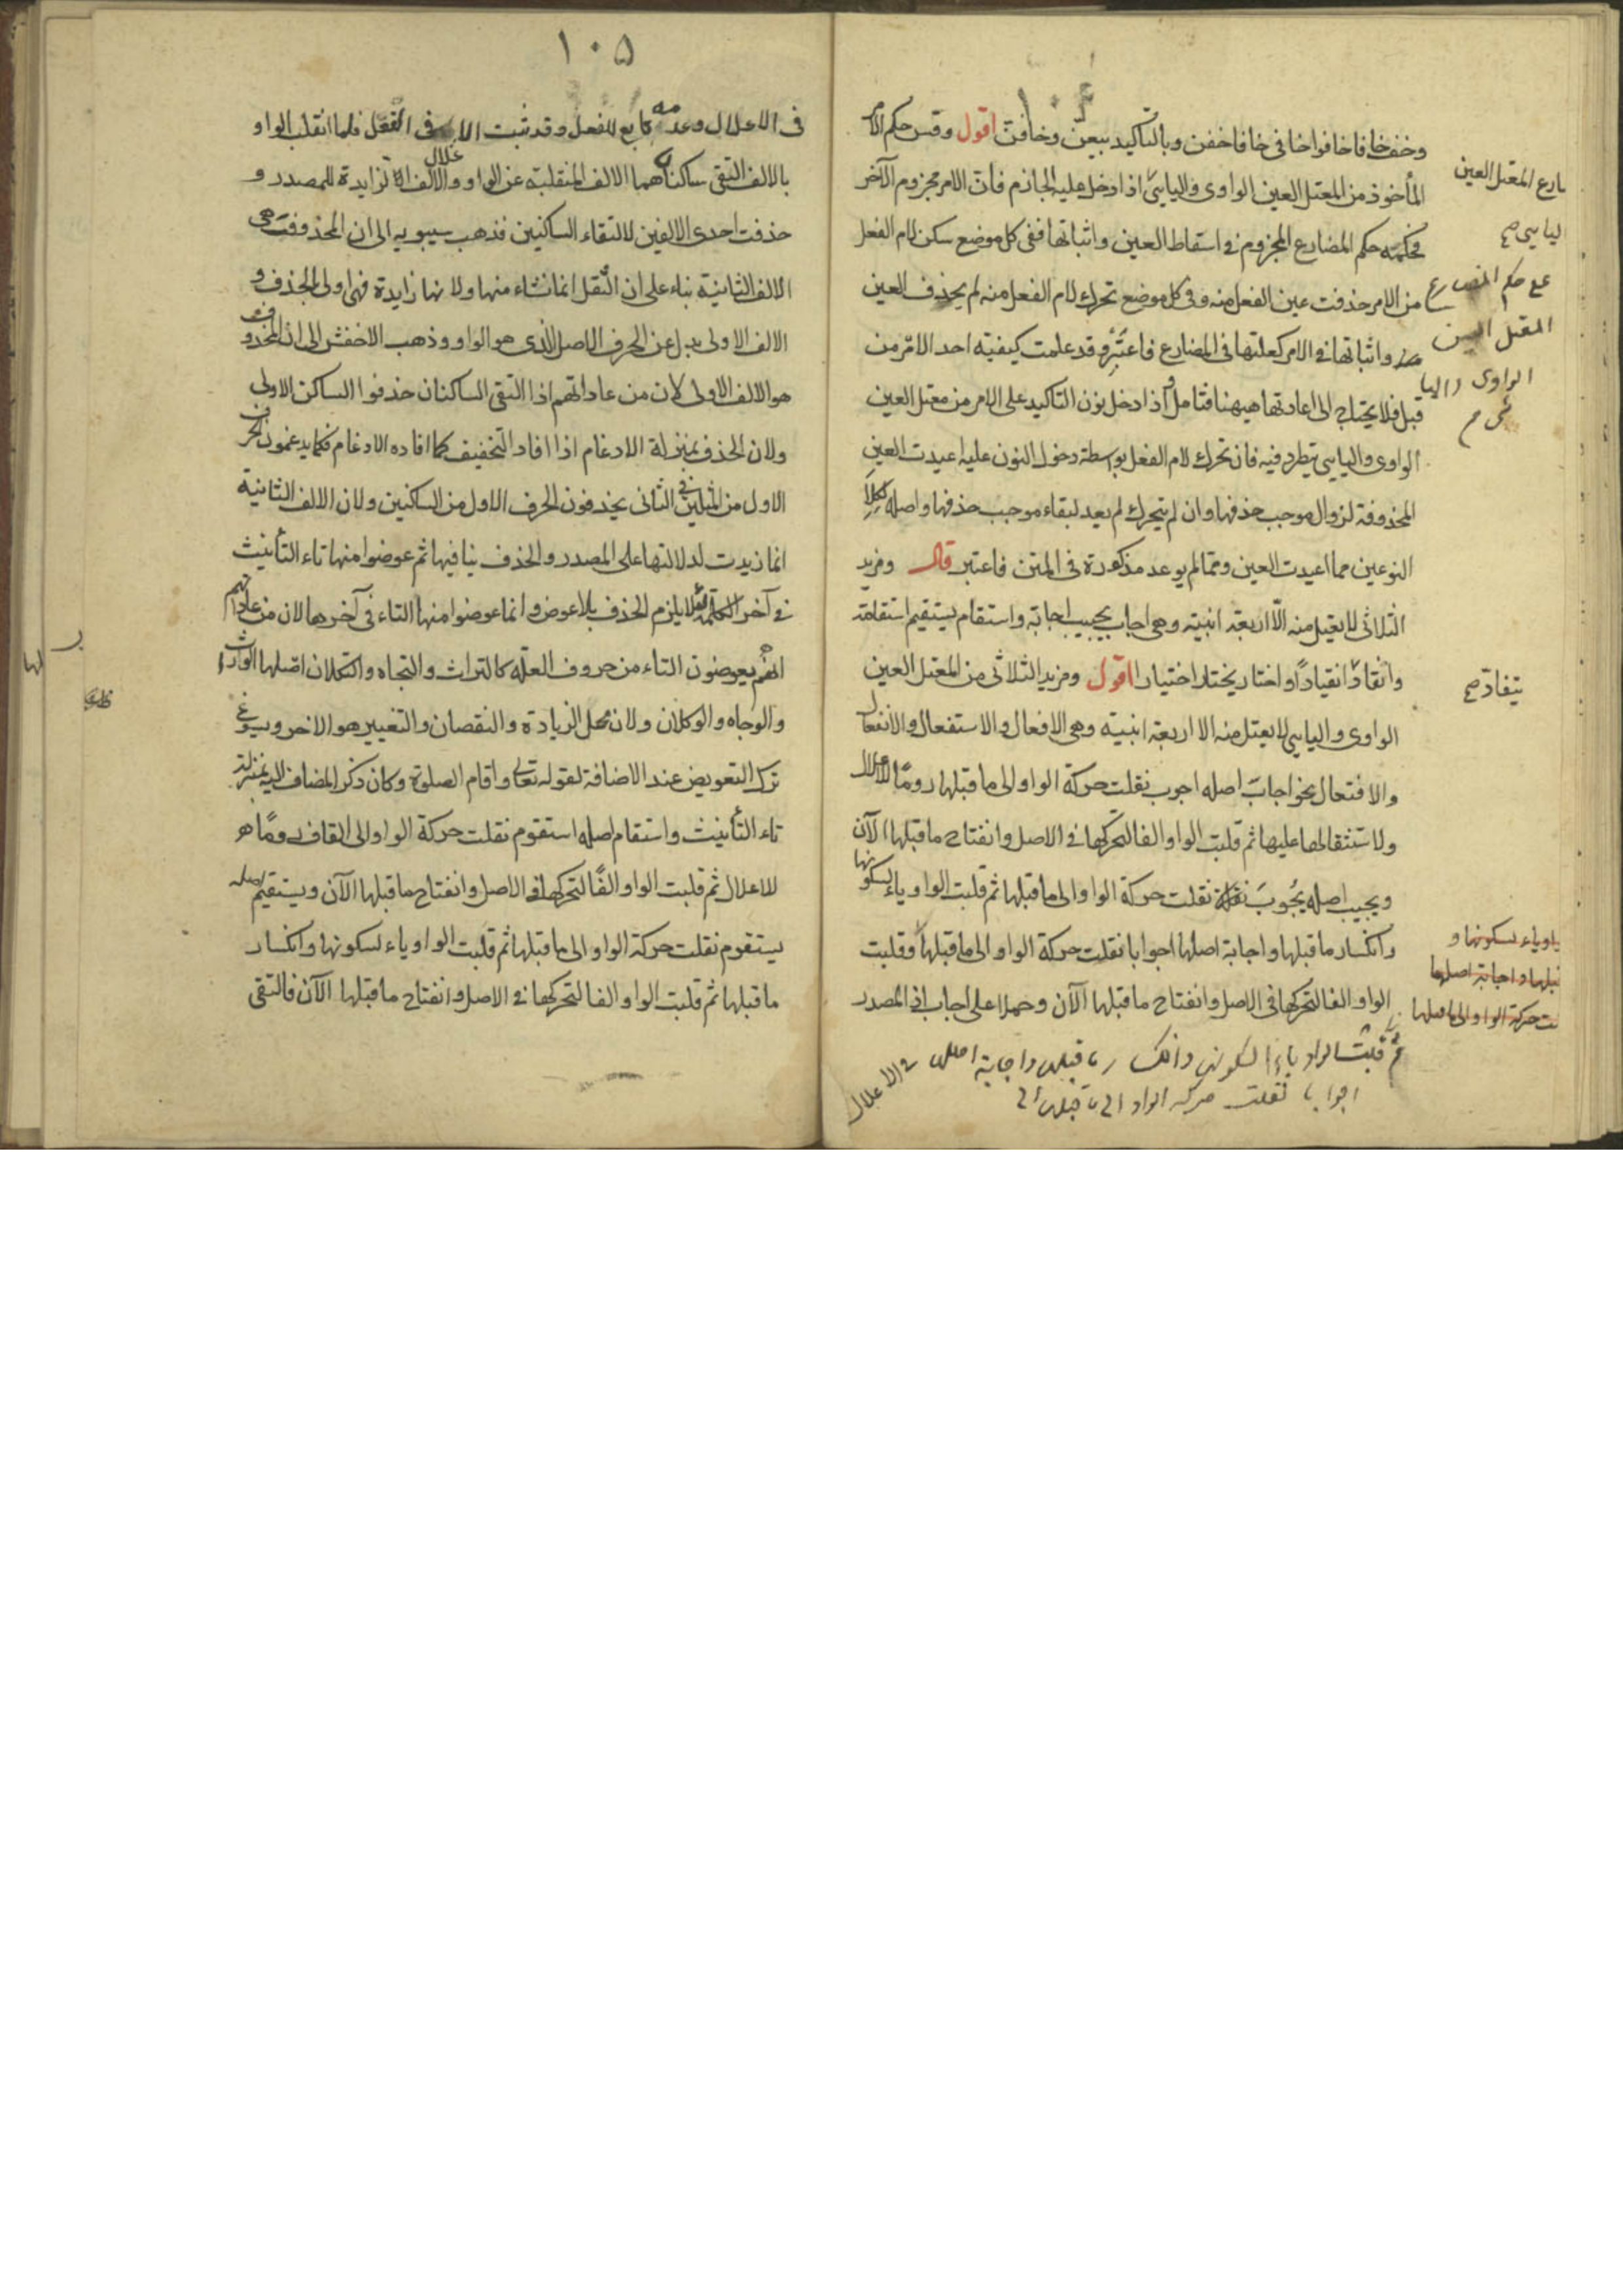 ١٠٤
وخف خافا خافوا خافى خافا خفن وبالتأكيد بيعن وخافن اقول وقس حكم الامر
المأخوذ من المعتل العين الواوى واليايى اذا دخل عليه الجازم فان الامر مجزوم الآخر
فحكمه حكم المضارع المجزوم فى اسقاط العين واثباتها ففى كل موضع سكن لام الفعل
من الامر حذفت عين الفعل منه وفى كل موضع تحرك لام الفعل منه لم يحذف العين
واثباتها فى الامر كعلتها فى المضارع فاعتبر وقد علمت كيفية اخذ الامر من
قبل فلا يحتاج الى اعادتها هيهنا فتامل واذا دخل نون التاكيد على الامر من معتل العين
الواوى واليايى يطرد فيه فان تحرك لام الفعل بواسطة دخول النون عليه اعيدت العين
المحذوفة لزوال موجب حذفها وان لم يتحرك لم يعد لبقاء موجب حذفها واصله
النوعين مما اعيدت العين ومما لم يوعد مذكورة فى المتن فاعتبر قال ومزيد
الثلاثى لا يعتل منه الا اربعة ابنية وهى اجاب يجيب اجابة واستقام يستقيم استقامة
وانقاد انقيادا واختار يختار اختيارا اقول ومزيد الثلاثى من المعتل العين
الواوى واليايى لا يعتل منه الا اربعة ابنية وهى الافعال والاستفعال والانفعال
والافتعال نحو اجاب اصله اجوب نقلت حركة الواو الى ما قبلها روما للاعلال
ولاستثقالها عليها ثم قلبت الواو الفا لتحركها فى الاصل وانفتاح ما قبلها الآن
ويجيب اصله يجوب نقلت حركة الواو الى ما قبلها ثم قلبت الواو ياء لسكونها
وانكسار ما قبلها واجابة اصلها اجوابا نقلت حركة الواو الى ما قبلها وقلبت
الواو الفا لتحركها فى الاصل وانفتاح ما قبلها الآن وحملا على اجاب اذ المصدر
ثم قلبت الواو ياء لسكونها وانكسار ما قبلها واجابة اصلها
اجوابا نقلت حركة الواو الى ما قبلها
فى الاعلال
ارع المعتل العين
ليايى صح
على حكم المضارع
المعتل العين
الواوى واليا
يى صح
ينقاد صح
ياء لسكونها و
قبلها واجابة اصلها
حركة الواو الى ما قبلها
١٠٥
فى الاعلال وعدمه تابع للفعل وقد ثبت الاعلال فى الفعل فلما انقلب الواو
بالالف التقى ساكنان هما الالف المنقلبة عن الواو والالف الزايدة للمصدر و
حذفت احدى الالفين لالتقاء الساكنين فذهب سيبويه الى ان المحذوفة هى
الالف الثانية بناء على ان الثقل انما نشاء منها ولانها زايدة فهى اولى بالحذف و
الالف الاولى بدل عن الحرف الاصل الذى هو الواو وذهب الاخفش الى ان المحذوف
هو الالف الاولى لان من عاداتهم اذا التقى الساكنان حذفوا الساكن الاولى
ولان الحذف بمنزلة الادغام اذا افاد التخفيف كما افاده الادغام فكما يدغمون الحرف
الاول من المثلين فى الثانى يحذفون الحرف الاول من الساكنين ولان الالف الثانية
انما زيدت لدلالتها على المصدر والحذف ينافيها ثم عوضوا منها تاء التأنيث
فى آخر الكلمة لئلا يلزم الحذف بلا عوض وانما عوضوا منها التاء فى آخرها لان من عاداتهم
انهم يعوضون التاء من حروف العلة كالتراث والتجاه والتكلان اصلها الوراث
والوجاه والوكلان ولان محل الزيادة والنقصان والتغيير هو الاخر ويسوغ
ترك التعويض عند الاضافة لقوله تعالى واقام الصلوة وكان ذكر المضاف اليه بمنزلة
تاء التأنيث واستقام اصله استقوم نقلت حركة الواو الى القاف روما هو
للاعلال ثم قلبت الواو الفا لتحركها فى الاصل وانفتاح ما قبلها الآن ويستقيم اصله
يستقوم نقلت حركة الواو الى ما قبلها ثم قلبت الواو ياء لسكونها وانكسار
ما قبلها ثم قلبت الواو الفا لتحركها فى الاصل وانفتاح ما قبلها الآن فالتقى
لها